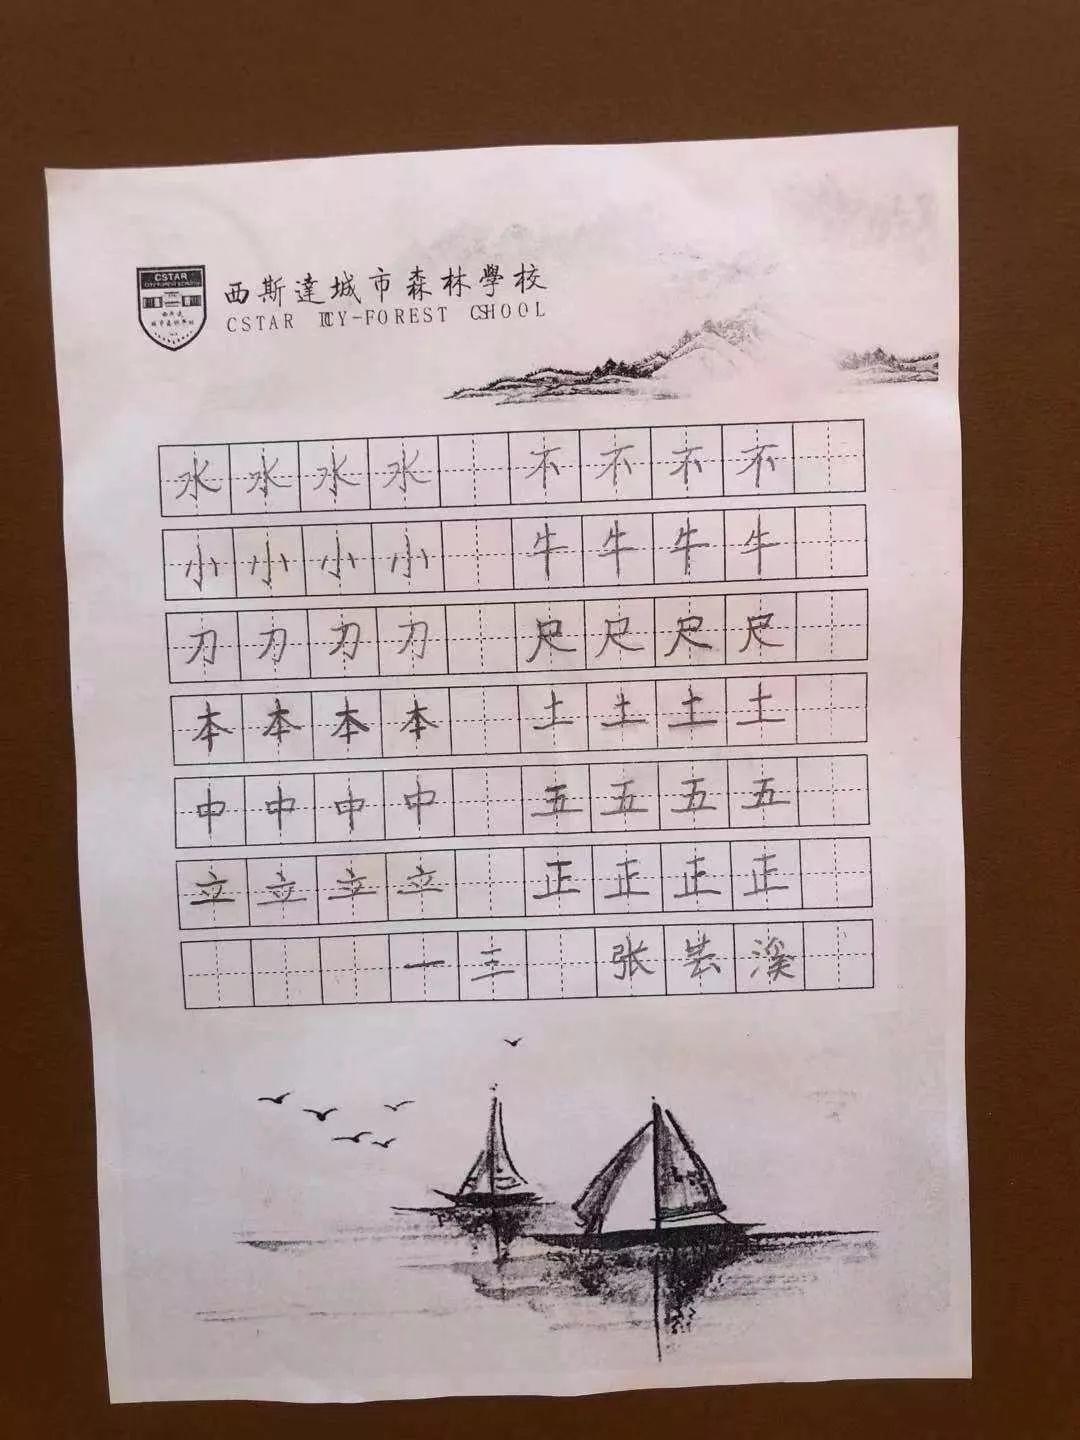 CSTAR
西斯達城市森林學校
CSTAR CITY-FOREST SCHOOL
水水水水 不不不不
小小小小 牛牛牛牛
刀刀刀刀 尺尺尺尺
本本本本 土土土土
中中中中 五五五五
立立立立 正正正正
一三 张芸溪